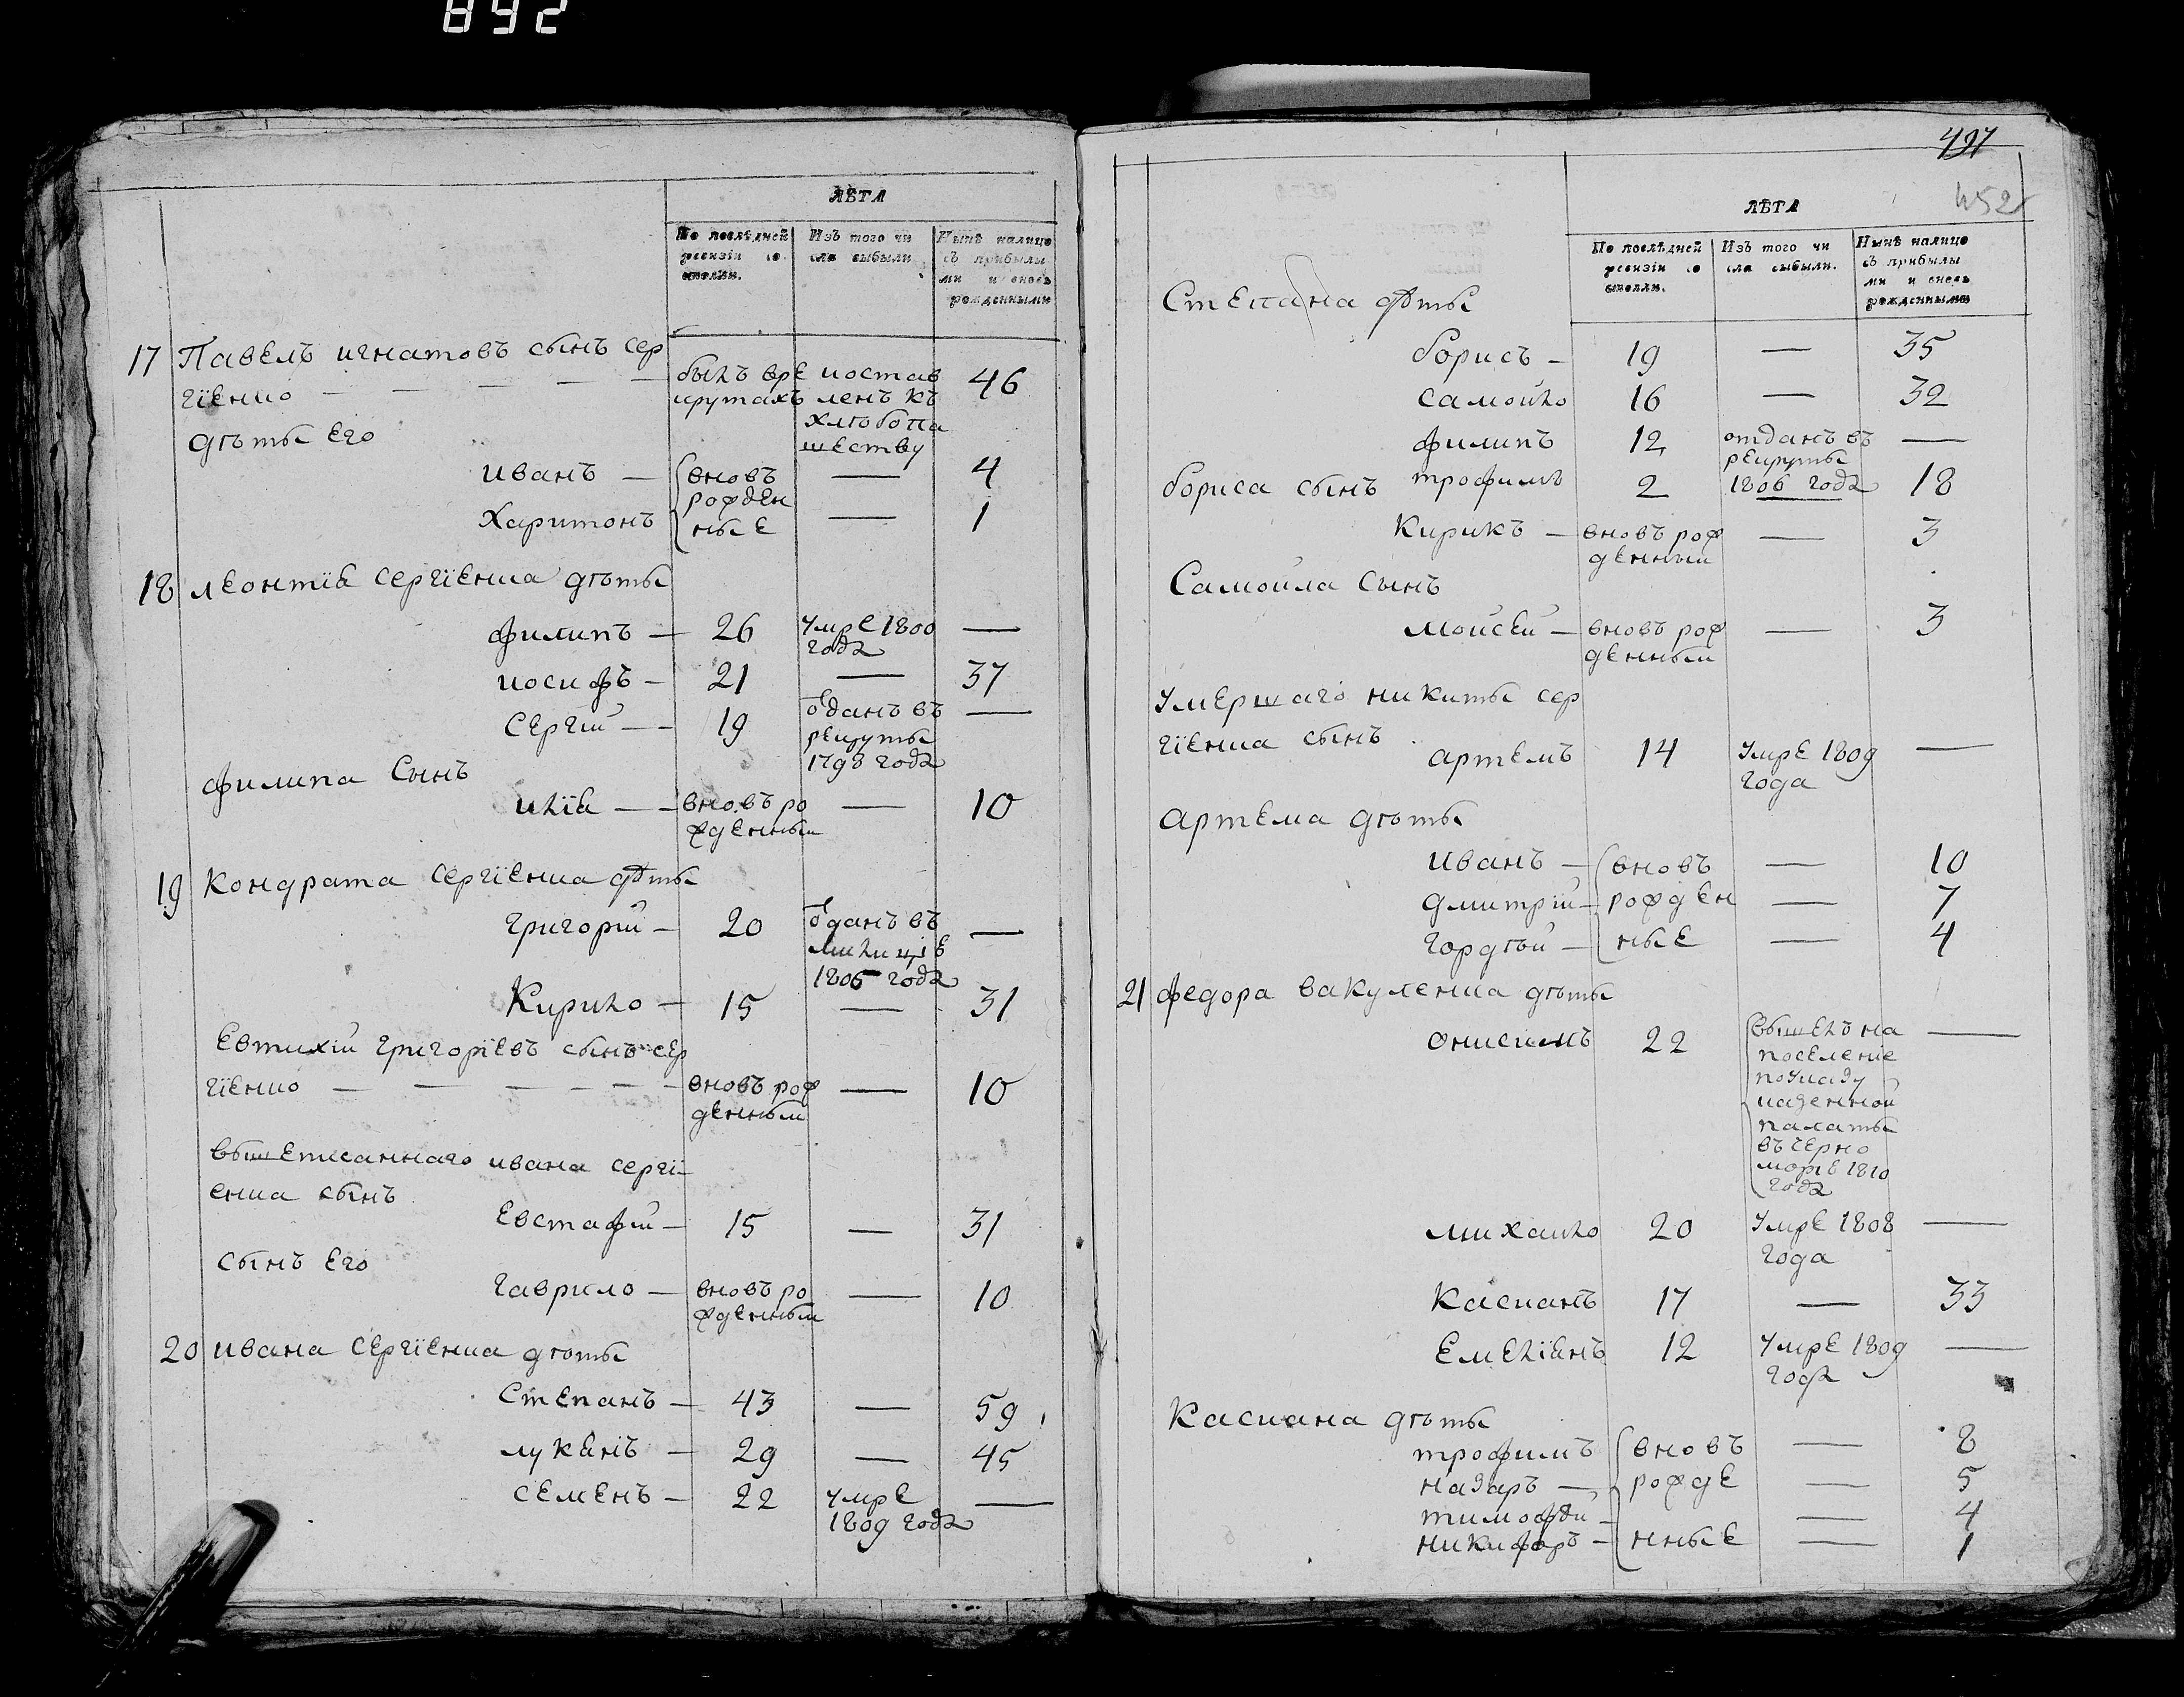 892
ЛѢТА
По послѣдней ревизіи состояли.
Изъ того числа выбыли
Нынѣ налицо съ прибылыми и вновь рожденными
17 Павелъ игнатовъ сынъ сер
гїенко — — — — — былъ вре
крутахъ постав
ленъ къ
хлѣбопа
шеству 46
дѣти Его
иванъ — вновь — 4
Харитонъ рожден
ные — 1
18 леонтїя сергїенка дѣти
филипъ — 26 умре 1800
года —
иосифъ — 21 — 37
Сергій — 19 ѿданъ въ
рекруты
1798 года —
филипа Сынъ
илїя — вновь ро
жденный — 10
19 Кондрата сергїенка дѣти
григорій — 20 ѿданъ въ
милицїю
1806 года —
Кирило — 15 — 31
Евтихій григорїевъ сынъ сер
гїенко — — — — — вновь рож
денный — 10
вышеписаннаго ивана сергї
енка сынъ
Евстафій — 15 — 31
сынъ Его
гаврило — вновь ро
жденный — 10
20 ивана сергїенка дѣти
Степанъ — 43 — 59
лукянъ — 29 — 45
семенъ — 22 умре
1809 года —
452
ЛѢТА
По послѣдней ревизіи состояли.
Изъ того числа выбыли.
Нынѣ налицо съ прибылыми и вновь рожденными
Степана дѣти
борисъ — 19 — 35
самойло 16 — 32
филипъ 12 отданъ въ
рекруты
1806 года —
бориса сынъ трофимъ 2 18
Кирикъ — вновь рож
денный — 3
Самойла Сынъ
мойсей — вновь рож
денный — 3
умершаго никиты сер
гїенка сынъ артемъ 14 умре 1809
года —
артема дѣти
иванъ — вновь — 10
дмитрій — рожден — 7
гордѣй — ные — 4
21 федора вакуленка дѣти
онисимъ 22 вышелъ на
поселеніе
по указу
казенной
палаты
въ черно
морїе 1810
года —
михайло 20 умре 1808
года —
Касианъ 17 — 33
Емелїянъ 12 умре 1809
года —
Касиана дѣти
трофимъ вновь — 8
назаръ — рожде — 5
тимофѣй — — 4
никифоръ — нные — 1